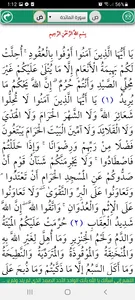 1:12
56%
ص
سورة المائدة
ص
بِسْمِ اللَّهِ الرَّحْمَٰنِ الرَّحِيمِ
يَا أَيُّهَا الَّذِينَ آمَنُوا أَوْفُوا بِالْعُقُودِ أُحِلَّتْ
لَكُمْ بَهِيمَةُ الْأَنْعَامِ إِلَّا مَا يُتْلَى عَلَيْكُمْ غَيْرَ
مُحِلِّي الصَّيْدِ وَأَنْتُمْ حُرُمٌ إِنَّ اللَّهَ يَحْكُمُ مَا
يُرِيدُ (١) يَا أَيُّهَا الَّذِينَ آمَنُوا لَا تُحِلُّوا
شَعَائِرَ اللَّهِ وَلَا الشَّهْرَ الْحَرَامَ وَلَا الْهَدْيَ
وَلَا الْقَلَائِدَ وَلَا آمِّينَ الْبَيْتَ الْحَرَامَ يَبْتَغُونَ
فَضْلًا مِنْ رَبِّهِمْ وَرِضْوَانًا وَإِذَا حَلَلْتُمْ
فَاصْطَادُوا وَلَا يَجْرِمَنَّكُمْ شَنَآنُ قَوْمٍ أَنْ
صَدُّوكُمْ عَنِ الْمَسْجِدِ الْحَرَامِ أَنْ تَعْتَدُوا
وَتَعَاوَنُوا عَلَى الْبِرِّ وَالتَّقْوَى وَلَا تَعَاوَنُوا
عَلَى الْإِثْمِ وَالْعُدْوَانِ وَاتَّقُوا اللَّهَ إِنَّ اللَّهَ
شَدِيدُ الْعِقَابِ (٢) حُرِّمَتْ عَلَيْكُمُ الْمَيْتَةُ
وَالدَّمُ وَلَحْمُ الْخِنْزِيرِ وَمَا أُهِلَّ لِغَيْرِ اللَّهِ بِهِ
وَالْمُنْخَنِقَةُ وَالْمَوْقُوذَةُ وَالْمُتَرَدِّيَةُ وَالنَّطِيحَةُ
وَمَا أَكَلَ السَّبُعُ إِلَّا مَا ذَكَّيْتُمْ وَمَا ذُبِحَ عَلَى